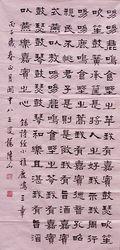 呦呦鹿鳴食野之苹我有嘉賓鼓瑟吹
笙吹笙鼓簧承筐是將人之好我示
我周行呦呦鹿鳴食野之蒿我有
嘉賓德音孔昭視民不恌君子是則
是傚我有旨酒嘉賓式燕以敖呦呦
鹿鳴食野之芩我有嘉賓鼓瑟鼓琴
鼓瑟鼓琴和樂且湛我有旨酒以燕
樂嘉賓之心 錄詩經小雅鹿鳴三章